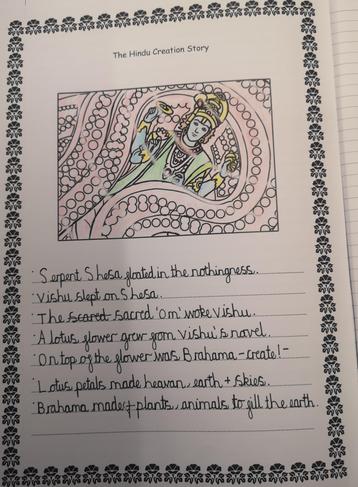 The Hindu Creation Story
· Serpent Shesa floated in the nothingness.
· Vishu slept on Shesa.
· The scared sacred 'Om' woke Vishu.
· A lotus flower grew from Vishu's novel.
· On top of the flower was Brahama - create! -
· Lotus petals made heavan, earth + skies.
· Brahama made plants, animals to fill the earth.